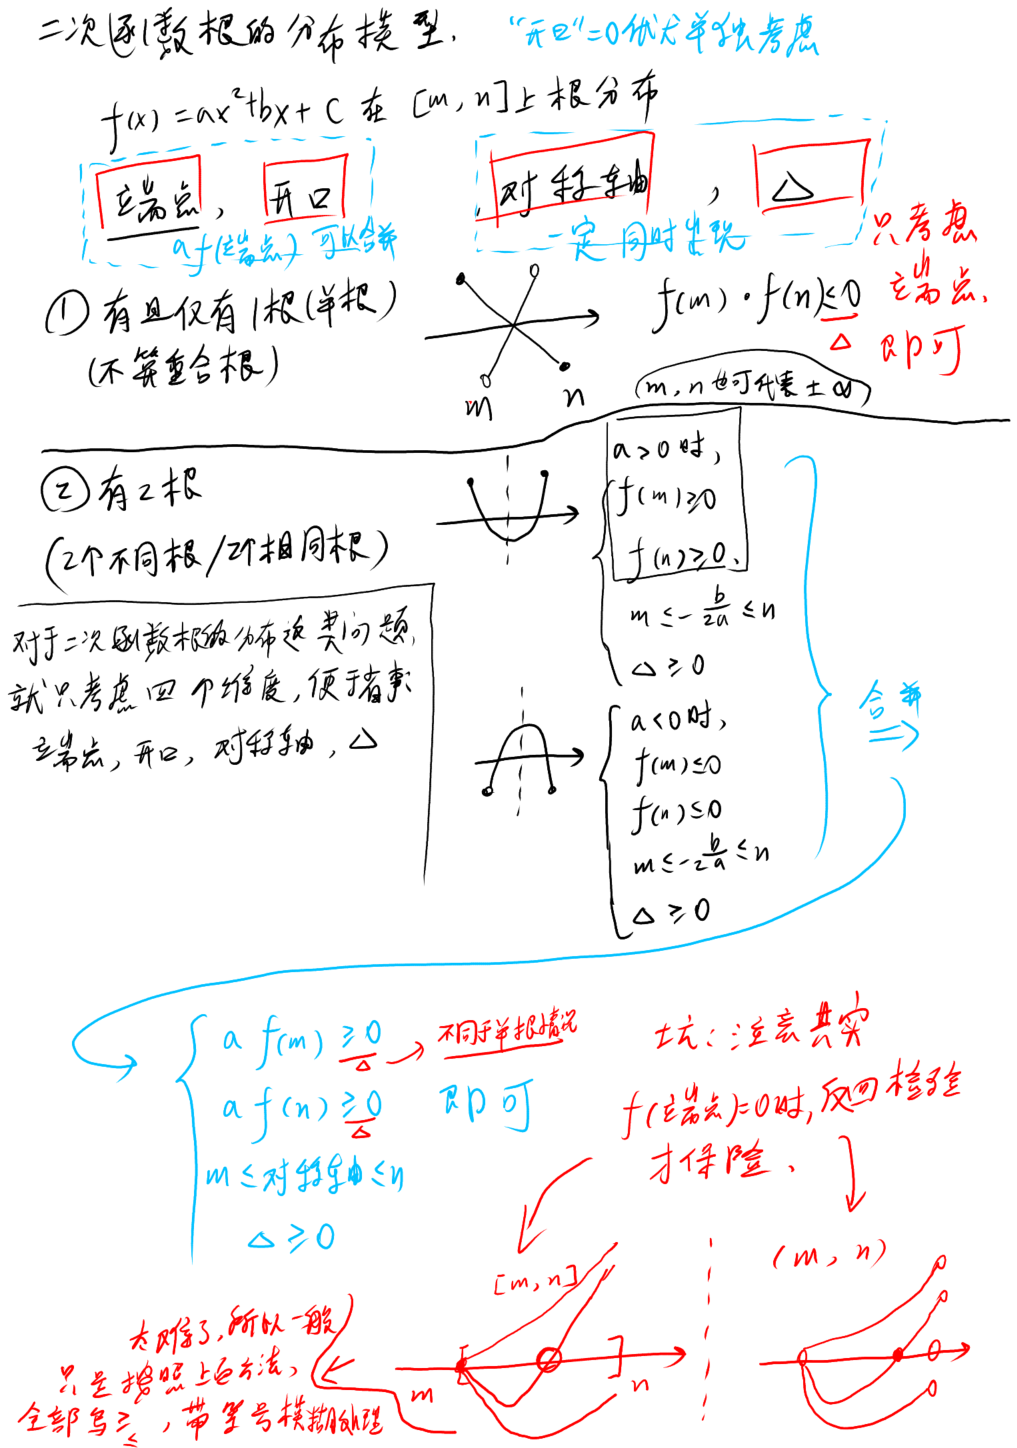 二次函数根的分布模型.
"开口"=0优先单独考虑
f(x)=ax²+bx+c 在 [m,n]上根分布
端点, 开口
对称轴, △
af(端点) 可以合并
一定同时出现
只考虑
端点,
即可
① 有且仅有1根(单根)
(不算重合根)
m
n
f(m)·f(n)≤0
△
(m,n也可代表±∞)
② 有2根
(2个不同根/2个相同根)
a>0时,
f(m)≥0
f(n)≥0,
m≤-b/2a≤n
△≥0
对于二次函数根的分布这类问题,
就只考虑四个维度,便于省事
端点,开口,对称轴,△
a<0时,
f(m)≤0
f(n)≤0
m≤-b/2a≤n
△≥0
合并
⇒
a f(m)≥0 → 不同于单根情况
△
a f(n)≥0 即可
△
m≤对称轴≤n
△≥0
坑:注意其实
f(端点)=0时,反回检验
才保险.
[m,n]
(m,n)
m
n
太难了,所以一般
只是按照上面方法,
全部写≥≤,带等号模糊处理